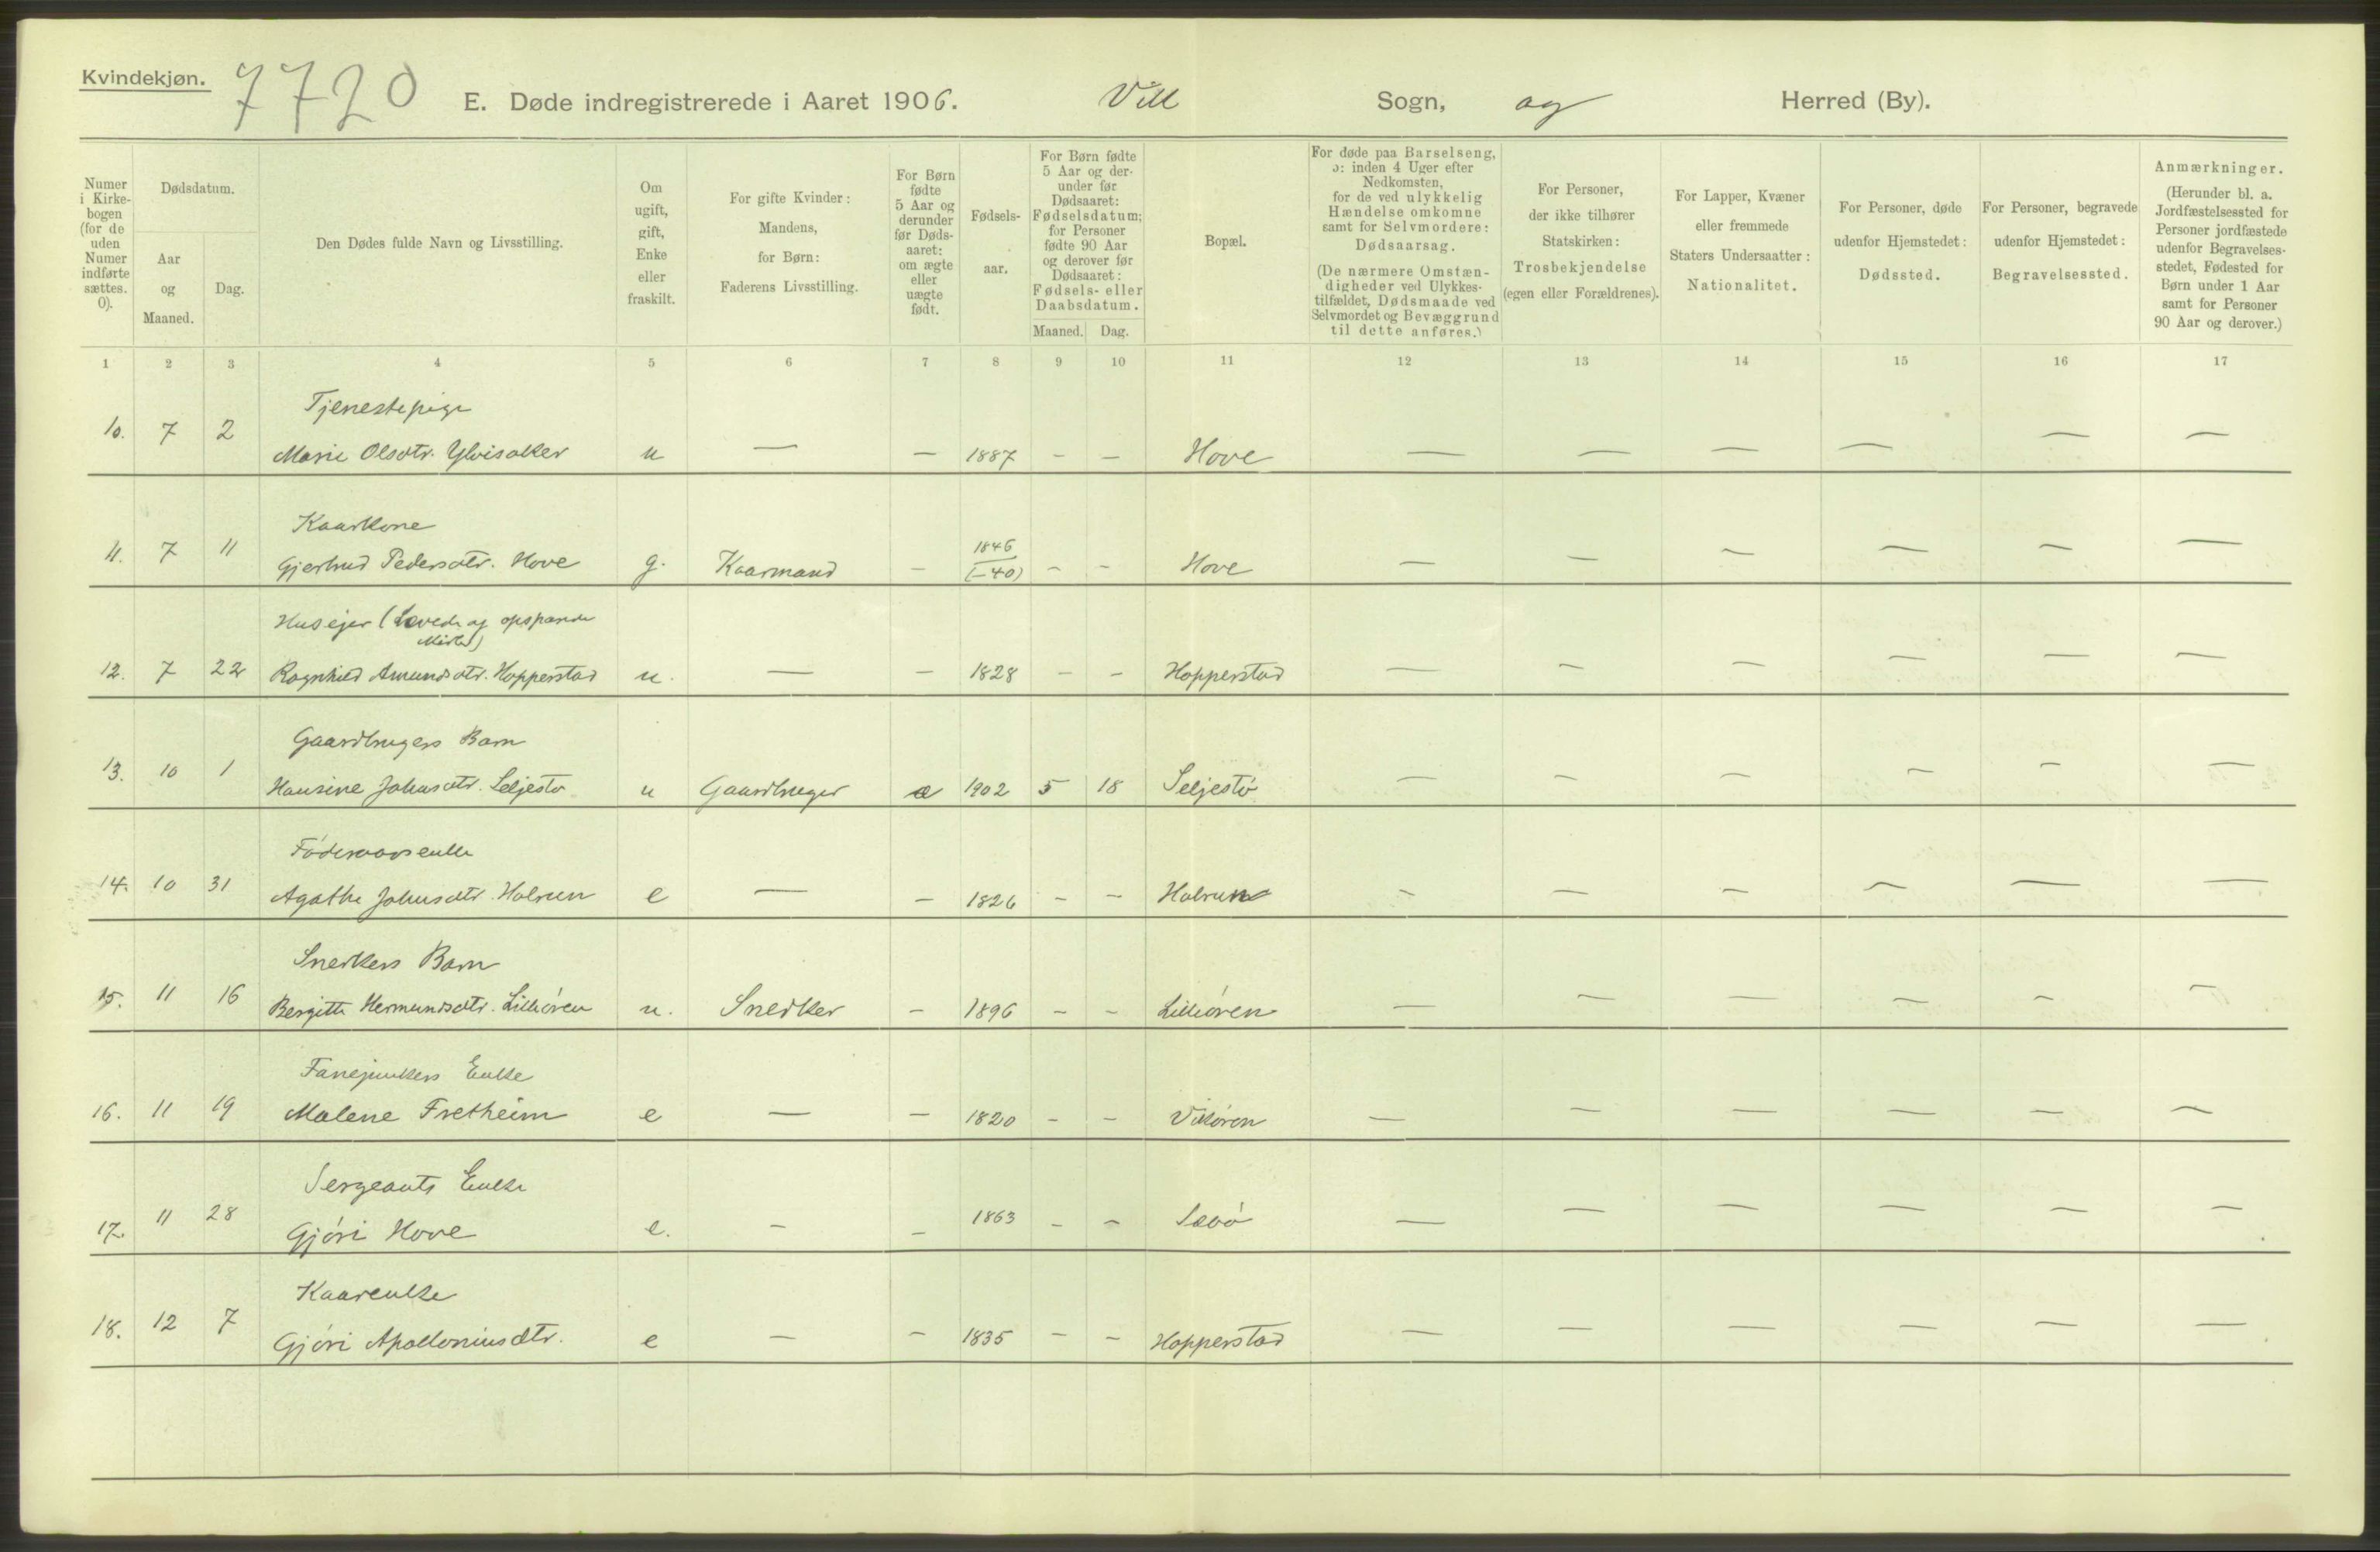 Kvindekjøn.
7720
E. Døde indregistrerede i Aaret 1906. Vik Sogn, og Herred (By).
Numer i Kirke-bogen (for de uden Numer indførte sættes. 0).
Dødsdatum.
Aar og Maaned.
Dag.
Den Dødes fulde Navn og Livsstilling.
Om ugift, gift, Enke eller fraskilt.
For gifte Kvinder: Mandens, for Børn: Faderens Livsstilling.
For Børn fødte 5 Aar og derunder før Døds-aaret: om ægte eller uægte født.
Fødsels-aar.
For Børn fødte 5 Aar og der-under før Dødsaaret: Fødselsdatum; for Personer fødte 90 Aar og derover før Dødsaaret: Fødsels- eller Daabsdatum.
Maaned. Dag.
Bopæl.
For døde paa Barselseng, ɔ: inden 4 Uger efter Nedkomsten, for de ved ulykkelig Hændelse omkomne samt for Selvmordere: Dødsaarsag.
(De nærmere Omstæn-digheder ved Ulykkes-tilfældet, Dødsmaade ved Selvmordet og Bevæggrund til dette anføres.)
For Personer, der ikke tilhører Statskirken: Trosbekjendelse (egen eller Forældrenes).
For Lapper, Kvæner eller fremmede Staters Undersaatter: Nationalitet.
For Personer, døde udenfor Hjemstedet: Dødssted.
For Personer, begravede udenfor Hjemstedet: Begravelsessted.
Anmærkninger.
(Herunder bl. a. Jordfæstelsessted for Personer jordfæstede udenfor Begravelses-stedet, Fødested for Børn under 1 Aar samt for Personer 90 Aar og derover.)
1 2 3 4 5 6 7 8 9 10 11 12 13 14 15 16 17
Tjenestepige
10. 7 2 Marie Olsdtr. Ylvisaker u — — 1887 - — Hove — — — — — —
Kaarkone
11. 7 11 Gjertrud Pedersdtr. Hove g. Kaarmand — 1846 (-40) - - Hove — — — — — —
Husejer
12. 7 22 Ragnhild Amundsdtr. Hopperstad u. — — 1828 - - Hopperstad — — — — — —
Gaardbrugers Barn
13. 10 1 Hansine Johnsdtr. Seljestö u Gaardbruger æ 1902 5 18 Seljestö — — — — — —
Föderaadsenke
14. 10 31 Agathe Johnsdtr. Halrun e — — 1826 - - Halrun — — — — — —
Snedkers Barn
15. 11 16 Bergitte Hermundsdtr. Lilleören u. Snedker — 1896 - - Lilleören — — — — — —
Fanejunkers Enke
16. 11 19 Malene Fretheim e — — 1820 - - Vikören — — — — — —
Sergeants Enke
17. 11 28 Gjöri Hove e. - — 1863 - - Sæbö — — — — — —
Kaarenke
18. 12 7 Gjöri Apolloniusdtr. e — - 1835 - - Hopperstad — — — — — —